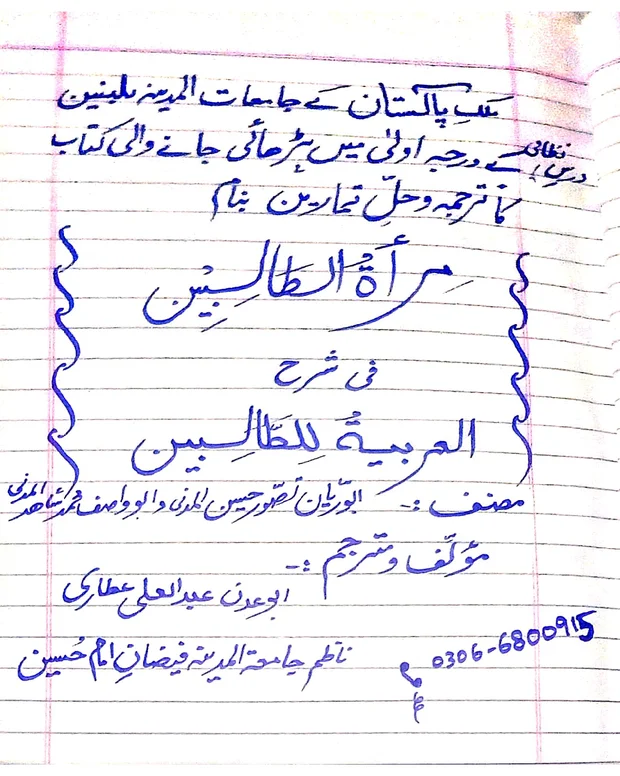 ملکِ پاکستان کے جامعات المدینہ للبنین
درسِ نظامی کے درجہ اولیٰ میں پڑھائی جانے والی کتاب
کا ترجمہ وحلِّ تمارین بنام
مِرأةُ الطَّالِبِيْن
فی شرح
العربيةُ لِلطَّالِبين
مصنف :- ابو ریّان تصّور حسین المدنی و ابو واصف محمد شاھد المدنی
مؤلِّف ومترجم :-
ابو عدن عبد العلی عطاری
ناظم جامعۃ المدینہ فیضانِ امام حُسین
0306-6800915